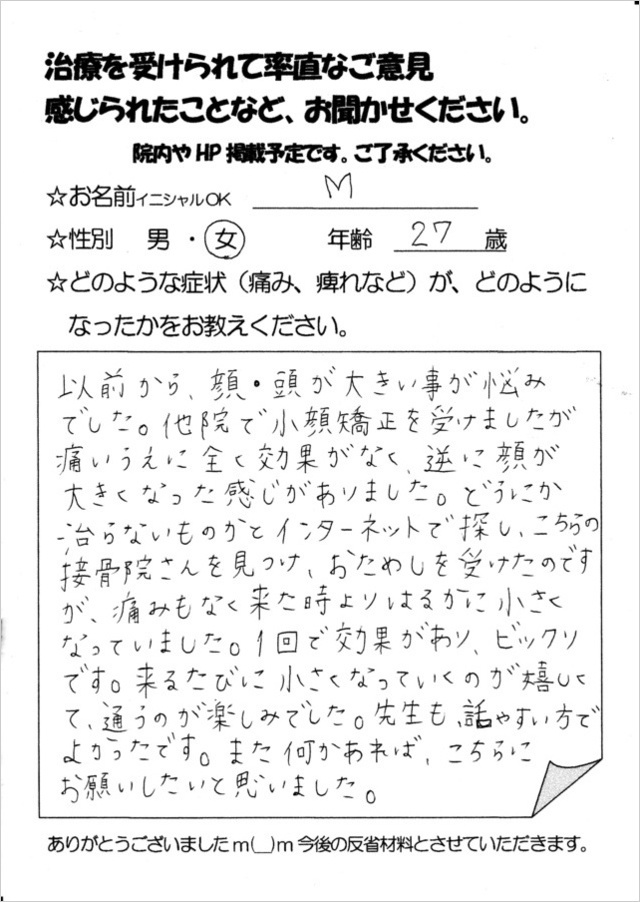 治療を受けられて率直なご意見
感じられたことなど、お聞かせください。
院内やHP掲載予定です。ご了承ください。
☆お名前イニシャルOK M
☆性別 男・女 年齢 27 歳
☆どのような症状（痛み、痺れなど）が、どのように
なったかをお教えください。
以前から、顔・頭が大きい事が悩み
でした。他院で小顔矯正を受けましたが
痛いうえに全く効果がなく、逆に顔が
大きくなった感じがありました。どうにか
治らないものかとインターネットで探し、こちらの
接骨院さんを見つけ、おためしを受けたのです
が、痛みもなく来た時よりはるかに小さく
なっていました。1回で効果があり、ビックリ
です。来るたびに小さくなっていくのが嬉しく
て、通うのが楽しみでした。先生も、話やすい方で
よかったです。また何かあれば、こちらに
お願いしたいと思いました。
ありがとうございましたm(__)m今後の反省材料とさせていただきます。